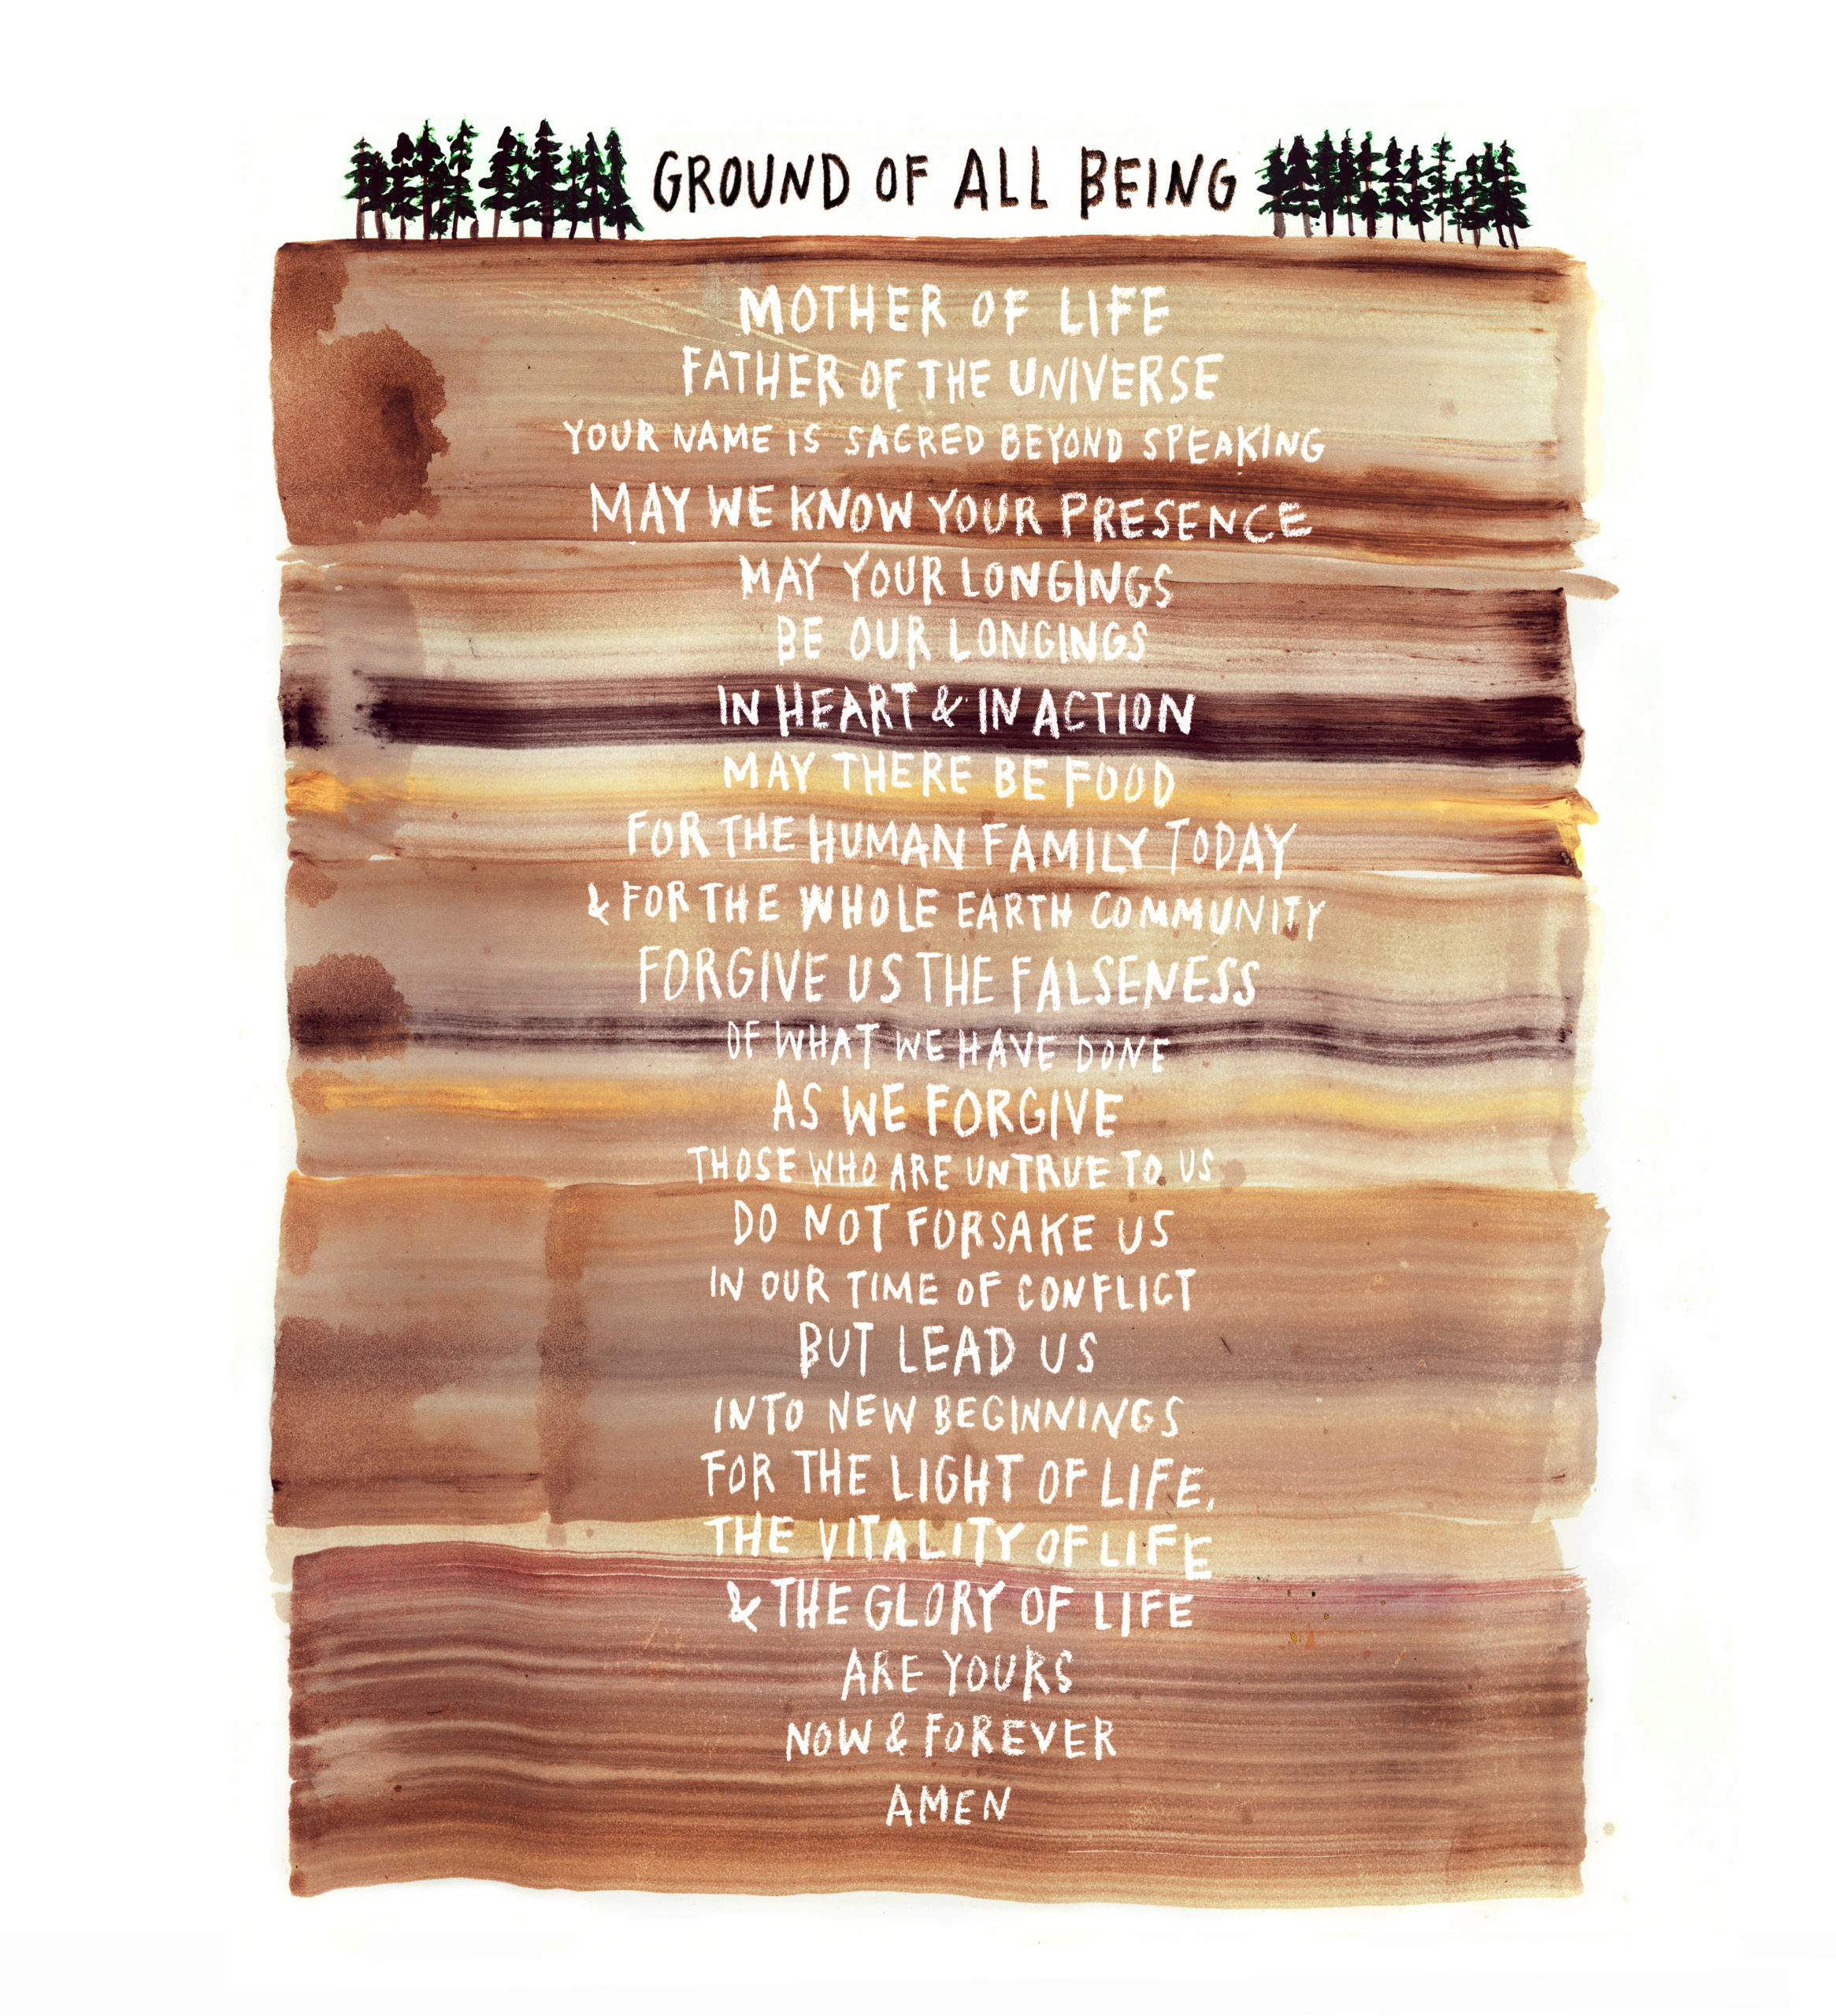 GROUND OF ALL BEING
MOTHER OF LIFE
FATHER OF THE UNIVERSE
YOUR NAME IS SACRED BEYOND SPEAKING
MAY WE KNOW YOUR PRESENCE
MAY YOUR LONGINGS
BE OUR LONGINGS
IN HEART & IN ACTION
MAY THERE BE FOOD
FOR THE HUMAN FAMILY TODAY
& FOR THE WHOLE EARTH COMMUNITY
FORGIVE US THE FALSENESS
OF WHAT WE HAVE DONE
AS WE FORGIVE
THOSE WHO ARE UNTRUE TO US
DO NOT FORSAKE US
IN OUR TIME OF CONFLICT
BUT LEAD US
INTO NEW BEGINNINGS
FOR THE LIGHT OF LIFE,
THE VITALITY OF LIFE
& THE GLORY OF LIFE
ARE YOURS
NOW & FOREVER
AMEN